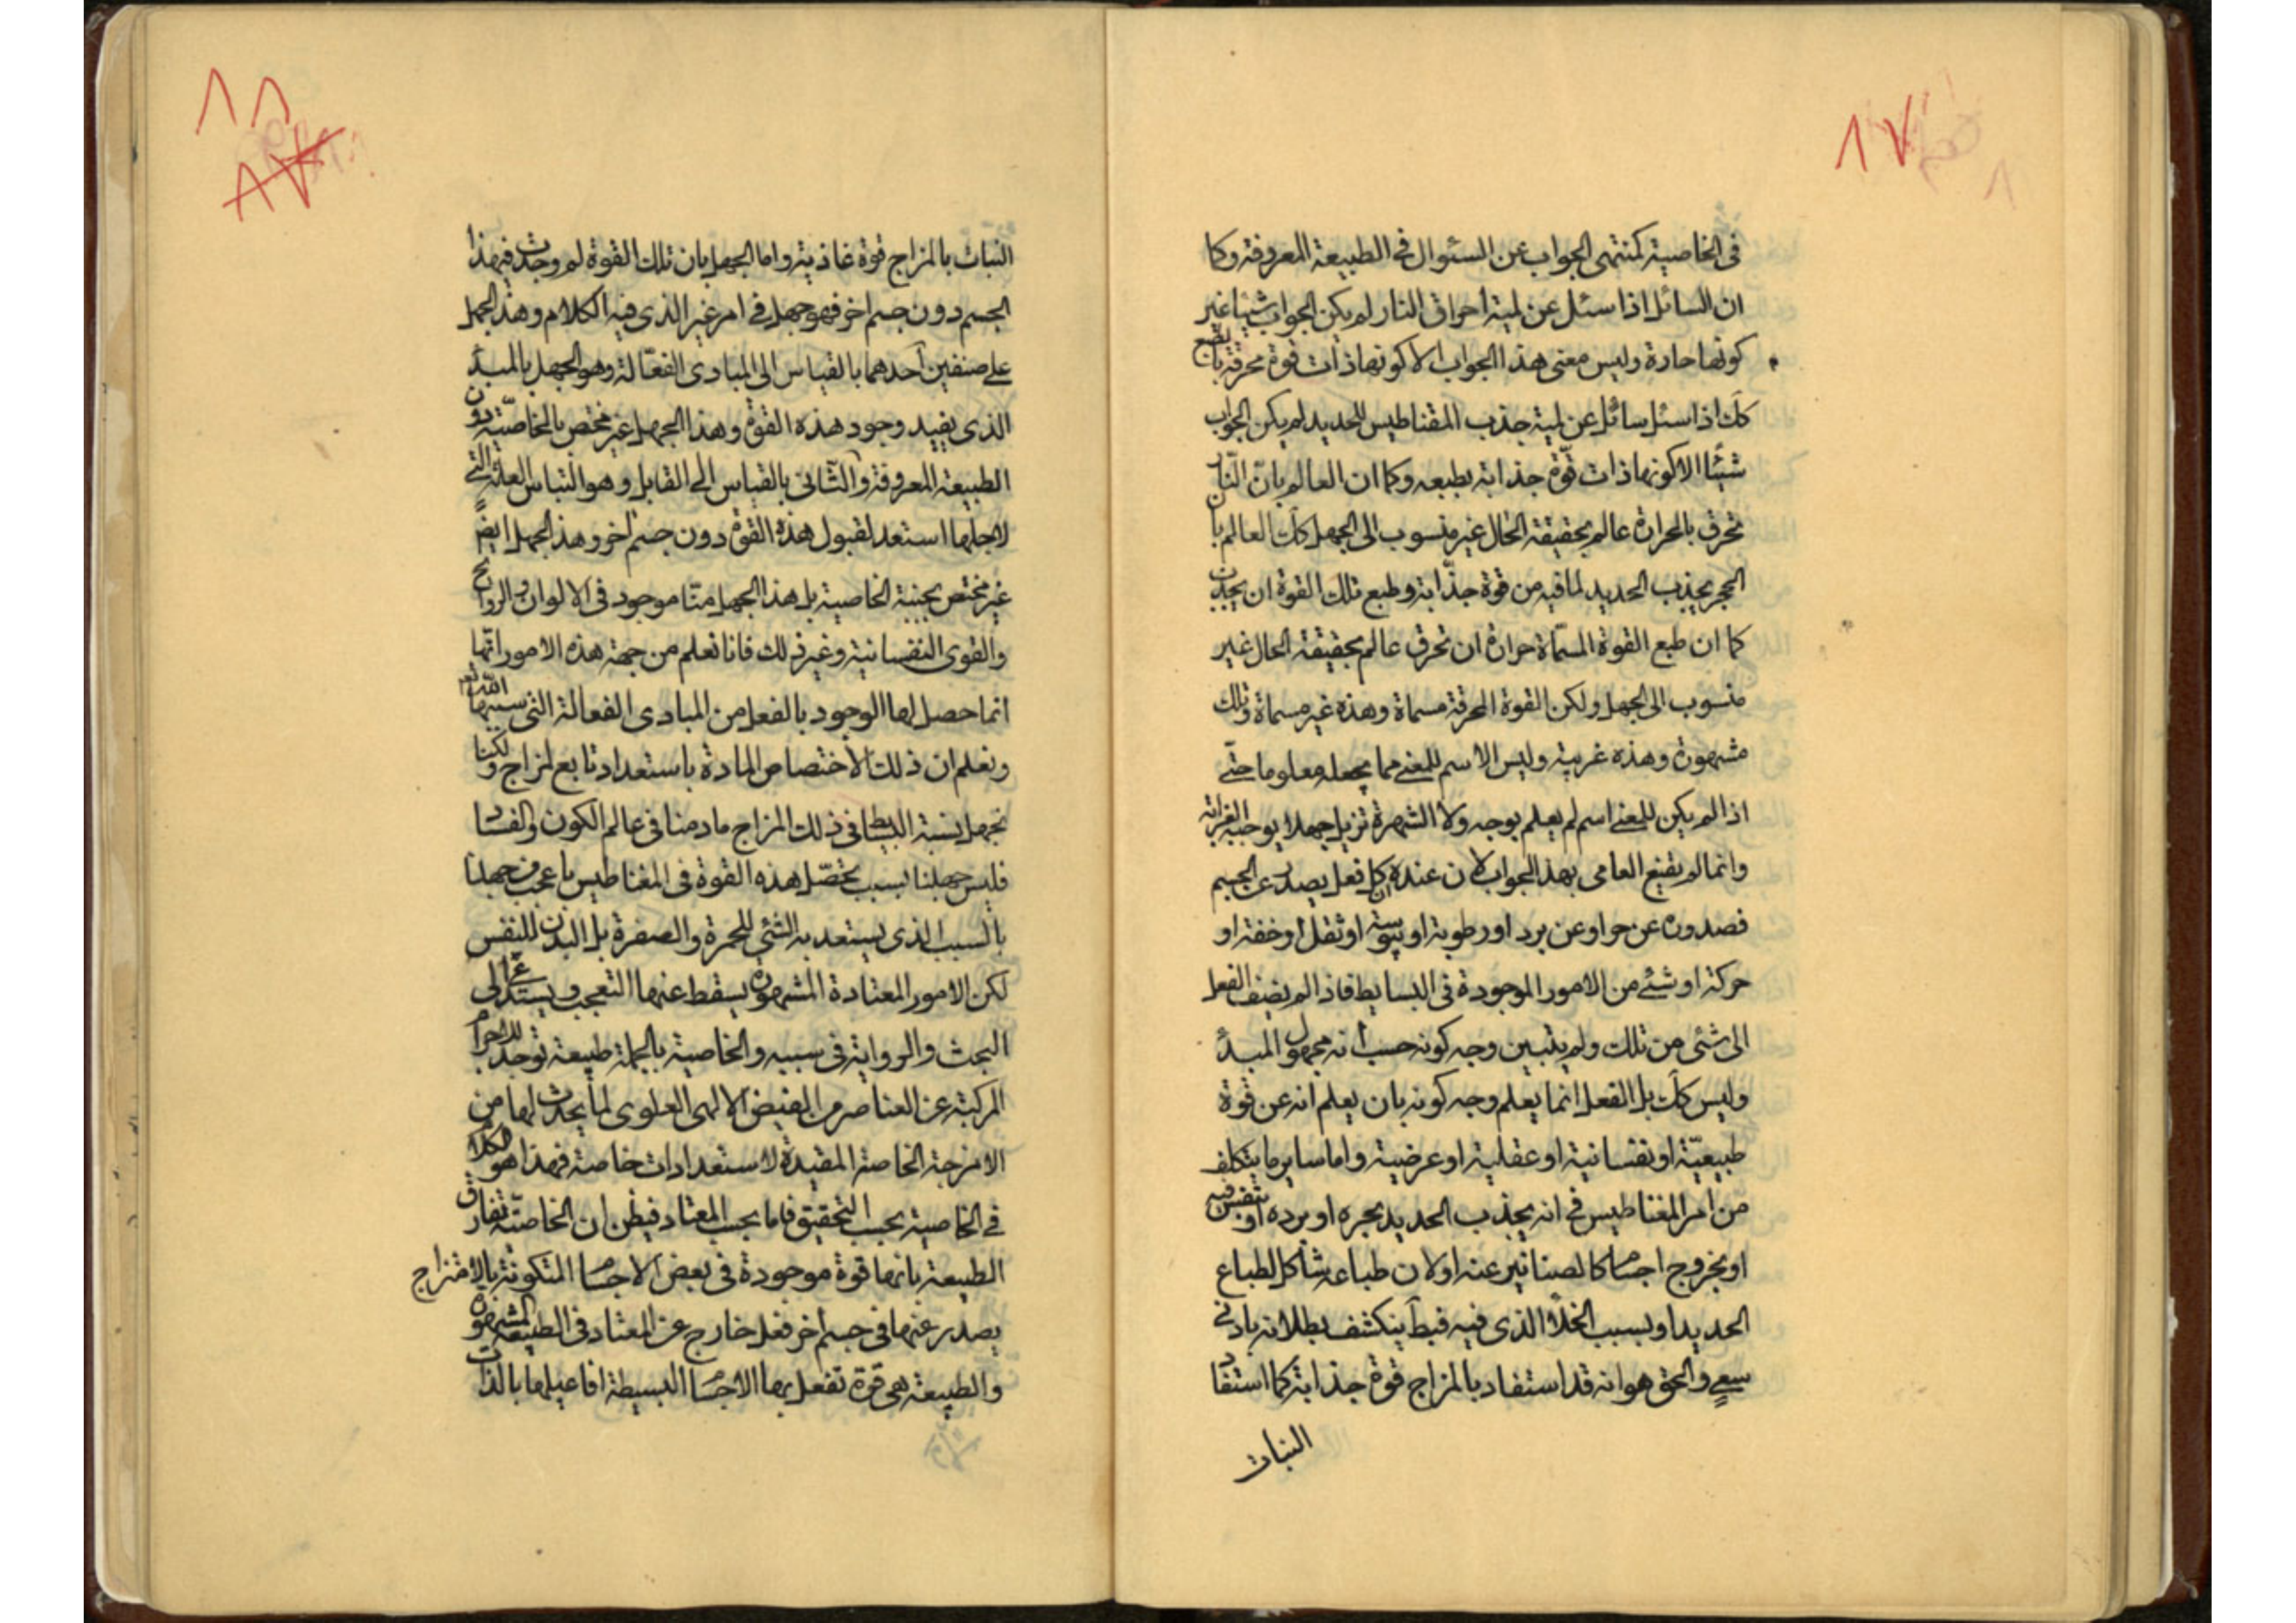 ٨٧
في الخاصية كمنتهى الجواب عن السئوال في الطبيعة المعروفة وكما
ان السائل اذا سئل عن لمية احراق النار لم يكن الجواب شيئا غير
كونها حارة وليس معنى هذا الجواب الا كونها ذات قوة محرقة بالطبع
كك اذا سئل سائل عن لمية جذب المقناطيس للحديد لم يكن الجواب
شيئا الا كونها ذات قوّة جذابة بطبعه وكما ان العالم بانّ النّار
تحرق بالحرارة عالم بحقيقة الحال غير منسوب الى الجهل كك العالم بان
الحجر يجذب الحديد لما فيه من قوة جذّابة وطبع تلك القوة ان يجذب
كما ان طبع القوة المسمّاة حرارة ان تحرق عالم بحقيقة الحال غير
منسوب الى الجهل ولكن القوة المحرقة مسماة وهذه غير مسماة وتلك
مشهورة وهذه غريبة وليس الاسم للمعنى مما يجعله معلوما حتّى
اذا لم يكن للمعنى اسم لم يعلم بوجه ولا الشهرة تزيل جهلا يوجبه الغرابة
وانما لم يقنع العامي بهذا الجواب لان عنده ان كل فعل يصدر عن الجسم
فصدوره عن حر او عن برد او رطوبة او يبوسة او ثقل او خفة او
حركة او شئ من الامور الموجودة في البسايط فاذا لم يضف الفعل
الى شئ من تلك ولم يتبين وجه كونه حسب انه مجهول المبدأ
وليس كك بل الفعل انما يعلم وجه كونه بان يعلم انه عن قوة
طبيعيّة او نفسانية او عقلية او عرضية واما ساير ما يتكلف
من امر المغناطيس في انه يجذب الحديد بحره او برده او بنفس فيه
او بخروج اجسام كالصنانير عنه او لان طباعه شاكل لطباع
الحديد او بسبب الخلأ الذي فيه ينكشف بطلانه بادنى
سعى والحق هو انه قد استفاد بالمزاج قوة جذابة كما استفاد
النبات
٨٨
٨٧
النبات بالمزاج قوة غاذية واما الجهل بان تلك القوة لم وجدت في هذا
الجسم دون جسم اخر فهو جهل في امر غير الذي فيه الكلام وهذ الجهل
على صنفين احدهما بالقياس الى المبادى الفعّالة وهو الجهل بالمبدأ
الذي يفيد وجود هذه القوة وهذا الجهل غير مختص بالخاصيّة دون
الطبيعة المعروفة والثّاني بالقياس الى القابل وهو التباس العلة التي
لاجلها استعد لقبول هذه القوة دون جسم اخر وهذ الجهل ايضً
غير مختص بجنبة الخاصية بل هذا الجهل منّا موجود في الالوان والروايح
والقوى النفسانية وغير ذلك فانا نعلم من جهة هذه الامور انّها
انما حصل لها الوجود بالفعل من المبادى الفعالة التي سببها الله تعم
ونعلم ان ذلك لاختصاص المادة باستعداد تابع لمزاج ولكنا
نجهل نسبة البسايط في ذلك المزاج ما دمنا في عالم الكون والفساد
فليس جهلنا بسبب تحصّل هذه القوة في المغناطيس باعجب من جهلنا
بالسبب الذي يستعد به الشئ للحمرة والصفرة بل البدن للنفس
لكن الامور المعتادة المشهورة يسقط عنها التعجب و
البحث والرواية في سببه والخاصية بالجملة طبيعة توجد للاجرام
المركبة عن العناصر من الفيض الالهى العلوى لما يحدث لها من
الامزجة الخاصة المفيدة لاستعدادات خاصة فهذا هو الكلام
في الخاصية بحسب التحقيق فاما بحسب المعتاد فيظن ان الخاصيّة تفارق
الطبيعة بانها قوة موجودة في بعض الاجسام المتكونة بالامتزاج
يصدر عنها في جسم اخر فعل خارج عن المعتاد في الطبيعة المشهورة
والطبيعة هى قوة تفعل بها الاجسام البسيطة افاعيلها بالذات